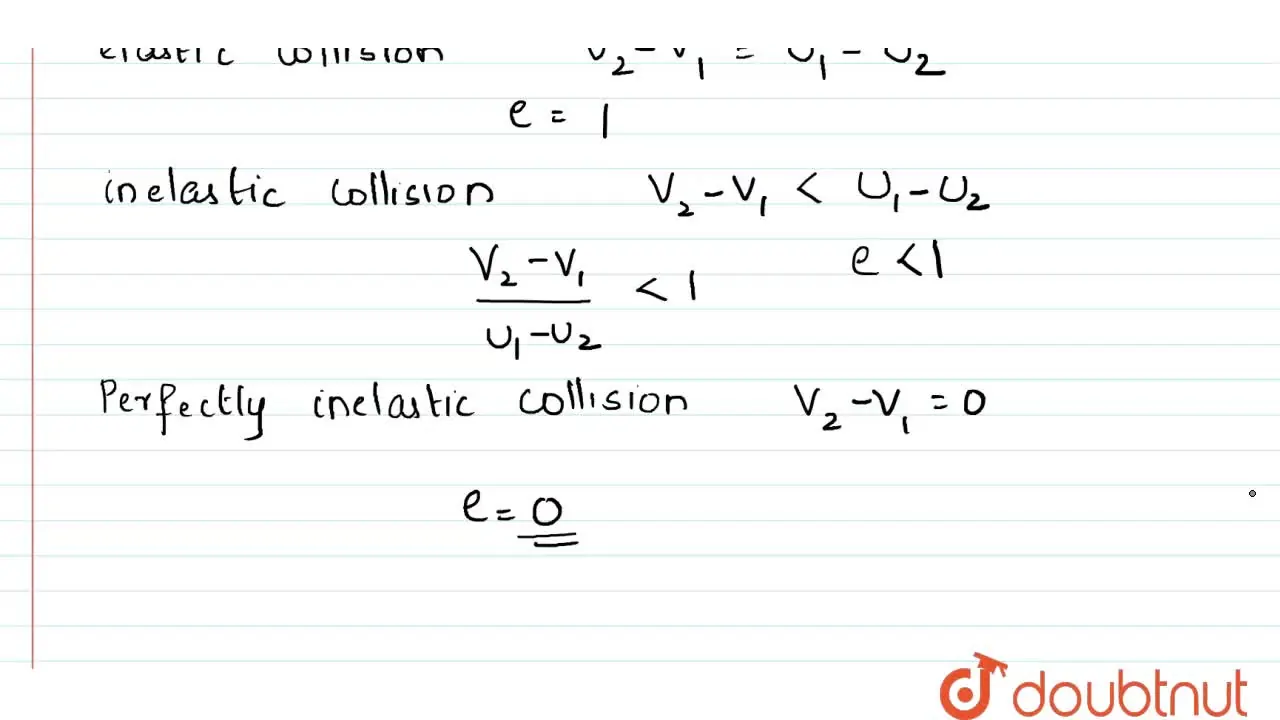 elastic collision V₂ - V₁ = U₁ - U₂
e = 1
inelastic collision V₂ - V₁ < U₁ - U₂
e < 1
V₂ - V₁ / U₁ - U₂ < 1
Perfectly inelastic collision V₂ - V₁ = 0
e = 0
doubtnut